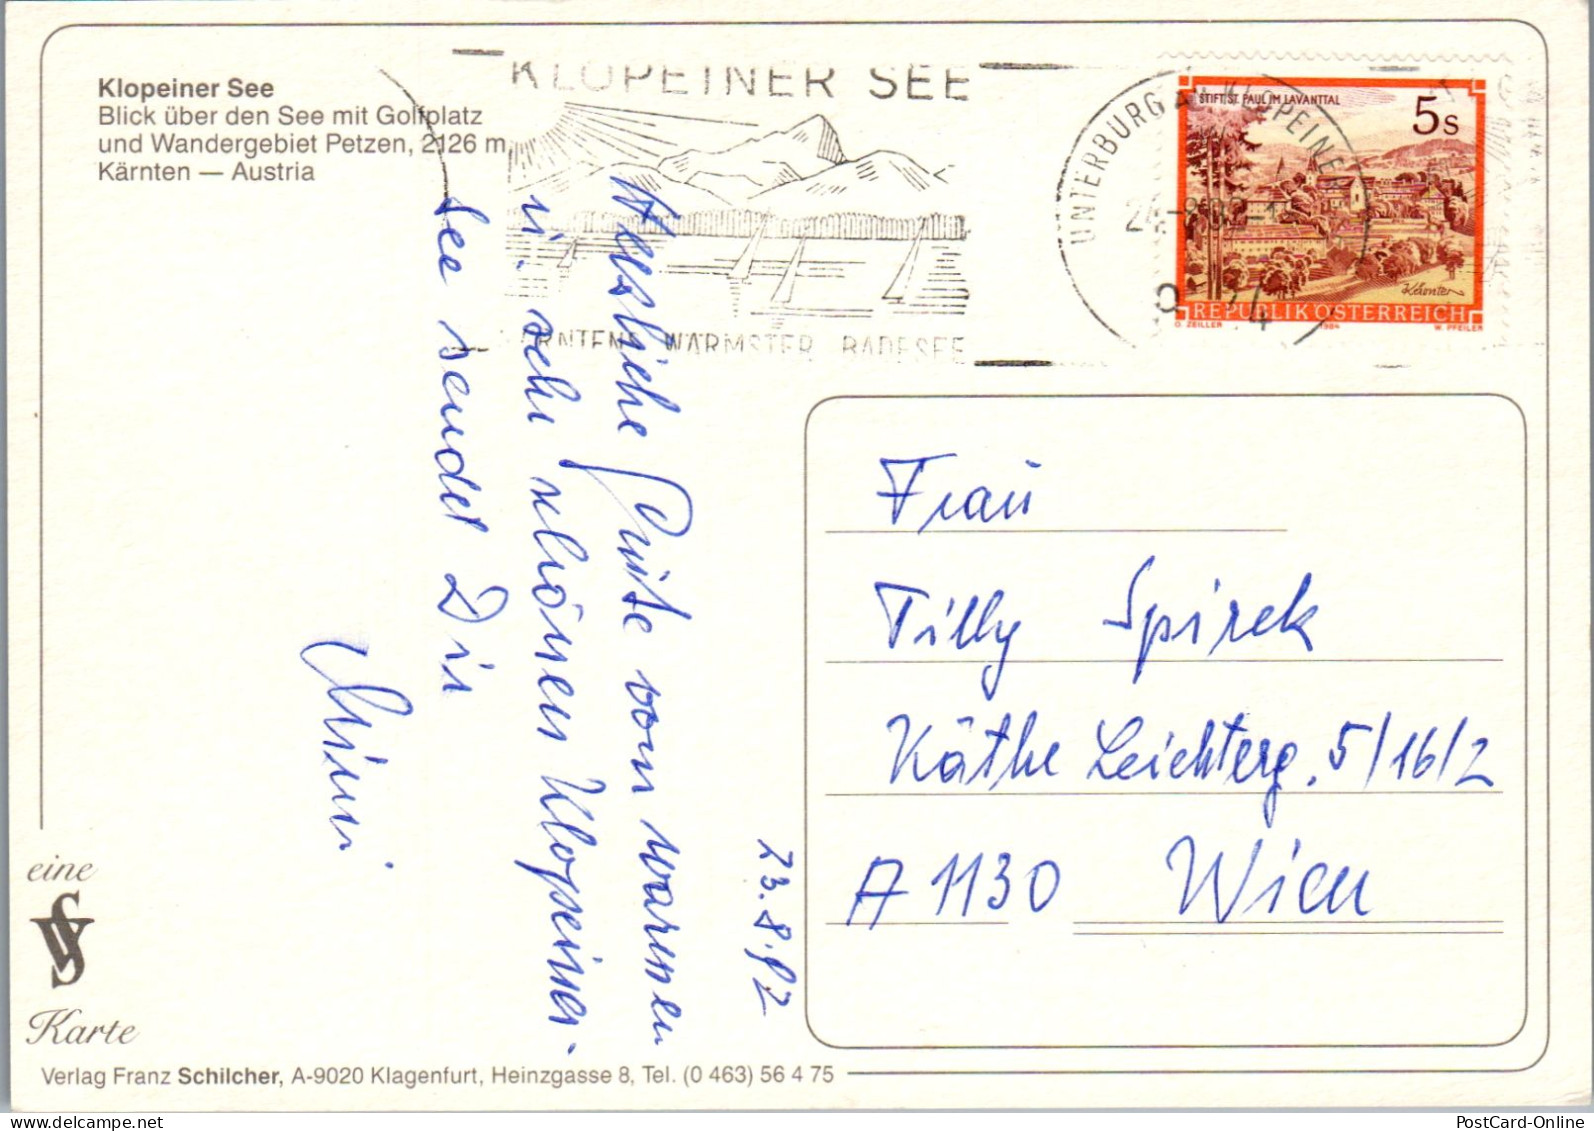 Klopeiner See
Blick über den See mit Golfplatz
und Wandergebiet Petzen, 2126 m,
Kärnten — Austria
KLOPEINER SEE
KÄRNTENS WÄRMSTER BADESEE
UNTERBURG AM KLOPEINER
STIFT ST. PAUL IM LAVANTTAL
5s
Kärnten
REPUBLIK ÖSTERREICH
O. ZEILLER 1984 W. PFEILER
23.8.92
Herzliche Grüße vom warmen
u. sehr schönen Klopeiner-
See sendet Dir
Mimi
Frau
Tilly Spirek
Käthe Leichterg. 5/16/2
A 1130 Wien
eine
VS
Karte
Verlag Franz Schilcher, A-9020 Klagenfurt, Heinzgasse 8, Tel. (0 463) 56 4 75
PostCard-Online